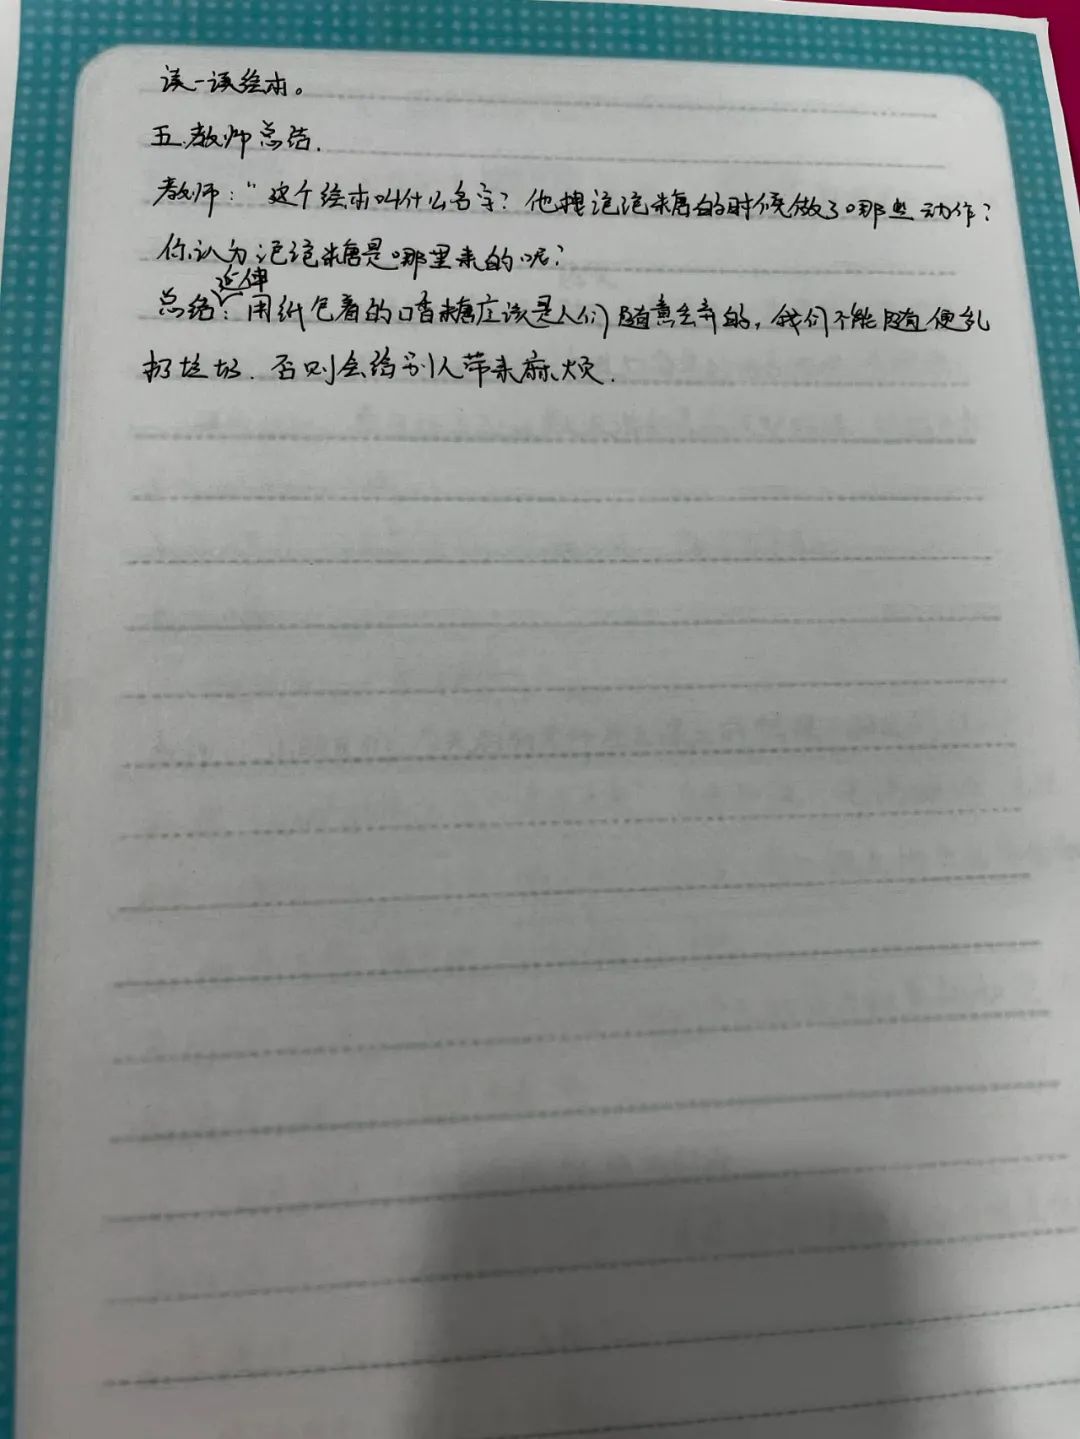 读一读绘本。
五.教师总结.
教师：“这个绘本叫什么名字？他捏泡泡糖的时候做了哪些动作？
你认为泡泡糖是哪里来的呢？
延伸
总结：用纸包着的口香糖应该是人们随意丢弃的，我们不能随便乱
扔垃圾.否则会给别人带来麻烦.